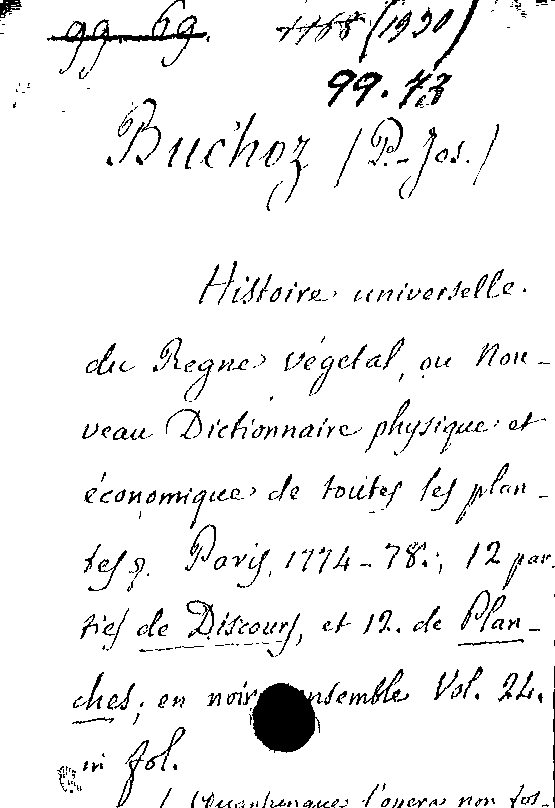 99. 69. 1168 (1930)
99.73
Buchoz (P.-Jos.)
Histoire universelle
du Regne végétal, ou Nou-
veau Dictionnaire physique et
économique de toutes les plan-
tes &. Paris, 1774-78.; 12 par
ties de Discours, et 12. de Plan-
ches; en noir, ensemble Vol. 24.
in fol.
( Quantunque l'opera non fos-